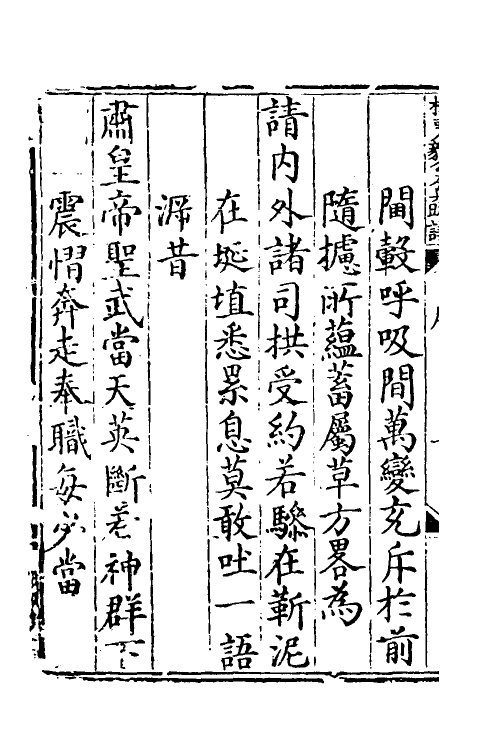 闔轂呼吸間萬變充斥於前
隨攄所蘊蓄屬草方畧為
請内外諸司拱受約若驂在靳泥
在埏埴悉累息莫敢吐一語
遡昔
肅皇帝聖武當天英斷若神群下
震慴奔走奉職每必當